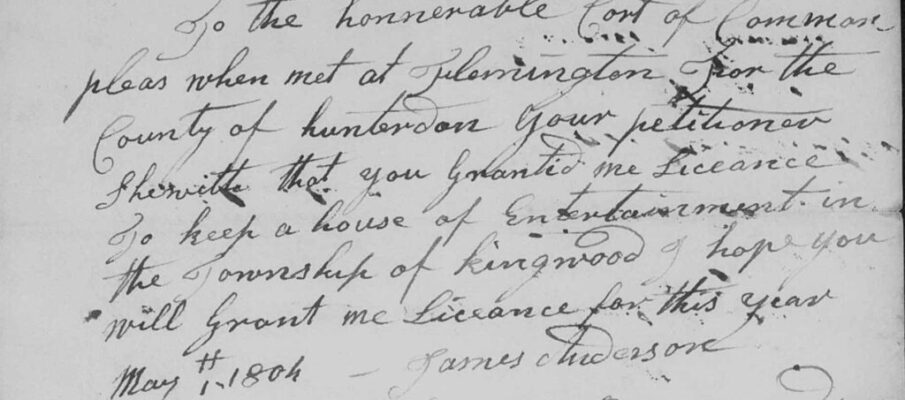 To the honnerable Cort of Common
pleas when met at Flemington For the
County of hunterdon Your petitioner
Shewith that you Grantid me Liceance
To keep a house of Entertainment in
the Township of kingwood I hope you
will Grant me Liceance for this year
May th 1 1804 - James Anderson